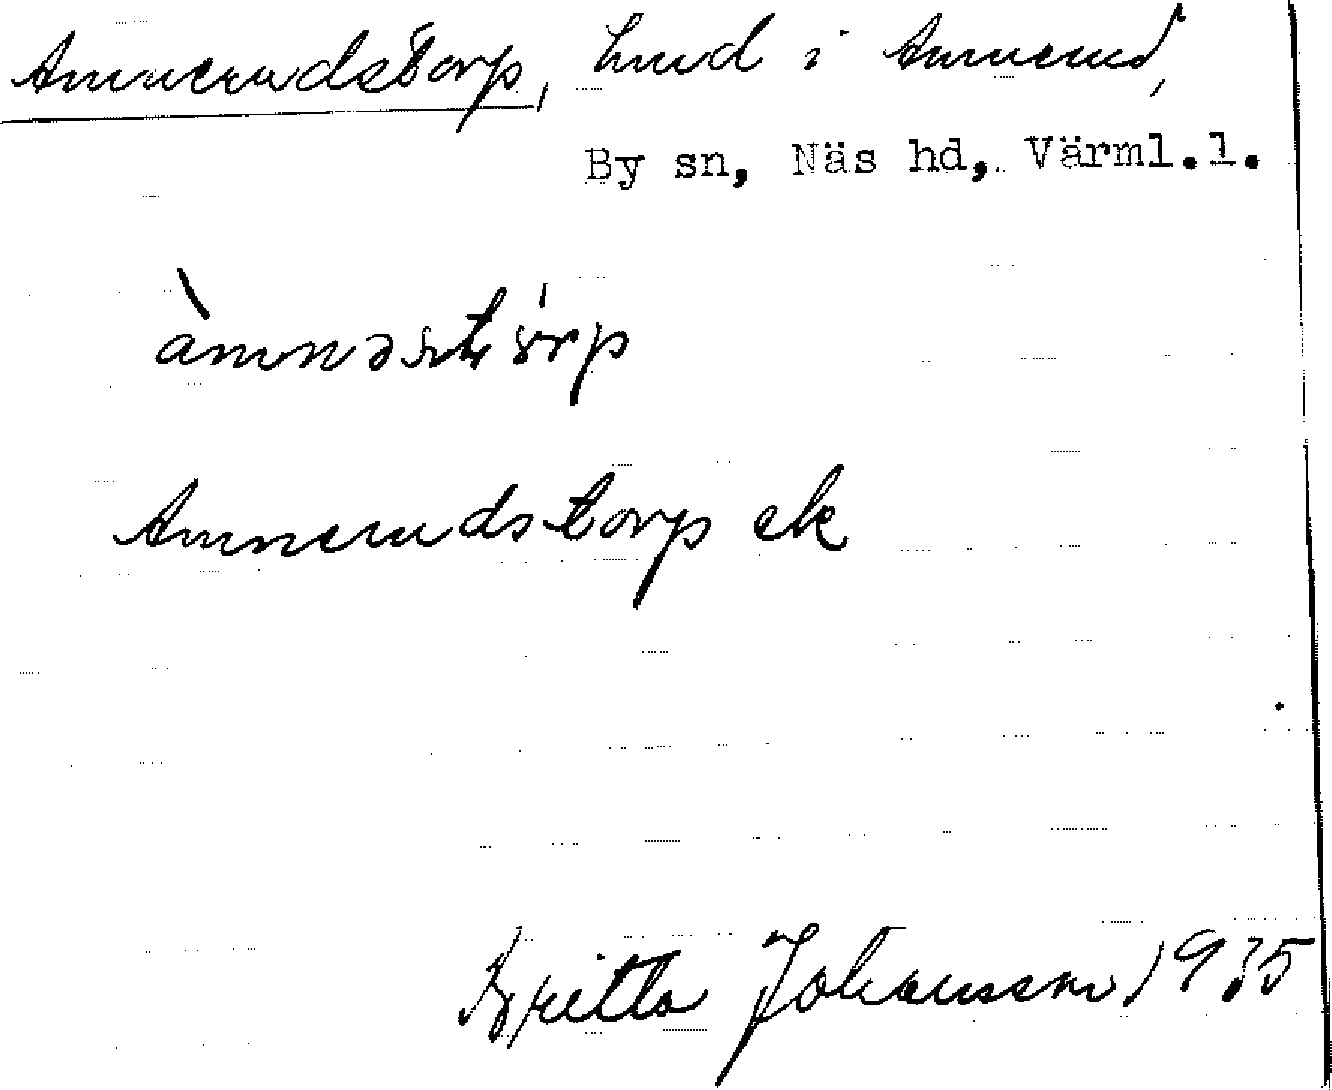 Amnerudstorp, hmd i Amnerud,
By sn, Näs hd, Värml.l.
Amnerudstorp ek
Britta Johansson 1935